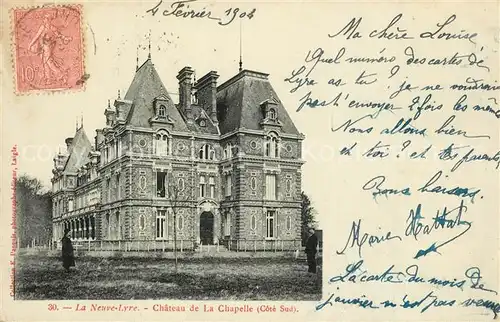 4 Février 1904
Ma chère Louise
Quel numéro des cartes de
Lyre as tu ? je ne voudrais
pas t'envoyer 2 fois les mêmes
Nous allons bien
et toi ? et tes parents
Bons baisers
Marie
La carte du mois de
janvier n'est pas venue
10
Collection
photographe-éditeur, Laigle.
30. — La Neuve-Lyre. - Château de La Chapelle (Côté Sud).